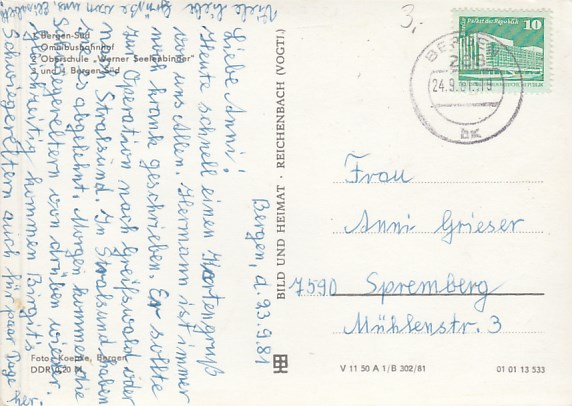 Bergen, d. 23.9.81
Liebe Anni!
Heute schnell einen Kartengruß
von uns Allen. Hermann ist immer
noch krank geschrieben. Er sollte
zur Operation nach Greifswald oder
nach Stralsund. In Stralsund haben
sie es abgelehnt. Morgen kommen die
Schwiegereltern von drüben wieder.
Gleichzeitig kommen Birgits
Schwiegereltern auch für paar Tage
her.
Viele liebe Grüße von uns,
1 Bergen-Süd
2 Omnibusbahnhof
3 Oberschule „Werner Seelenbinder"
2 und 4 Bergen-Süd
Foto: Koepke, Bergen
DDR 0,20 M
BILD UND HEIMAT · REICHENBACH (VOGTL)
3,-
Palast der Republik 10
BERGEN
24.9.81
bx
Frau
Anni Grieser
7590 Spremberg
Mühlenstr. 3
V 11 50 A 1/B 302/81
01 01 13 533